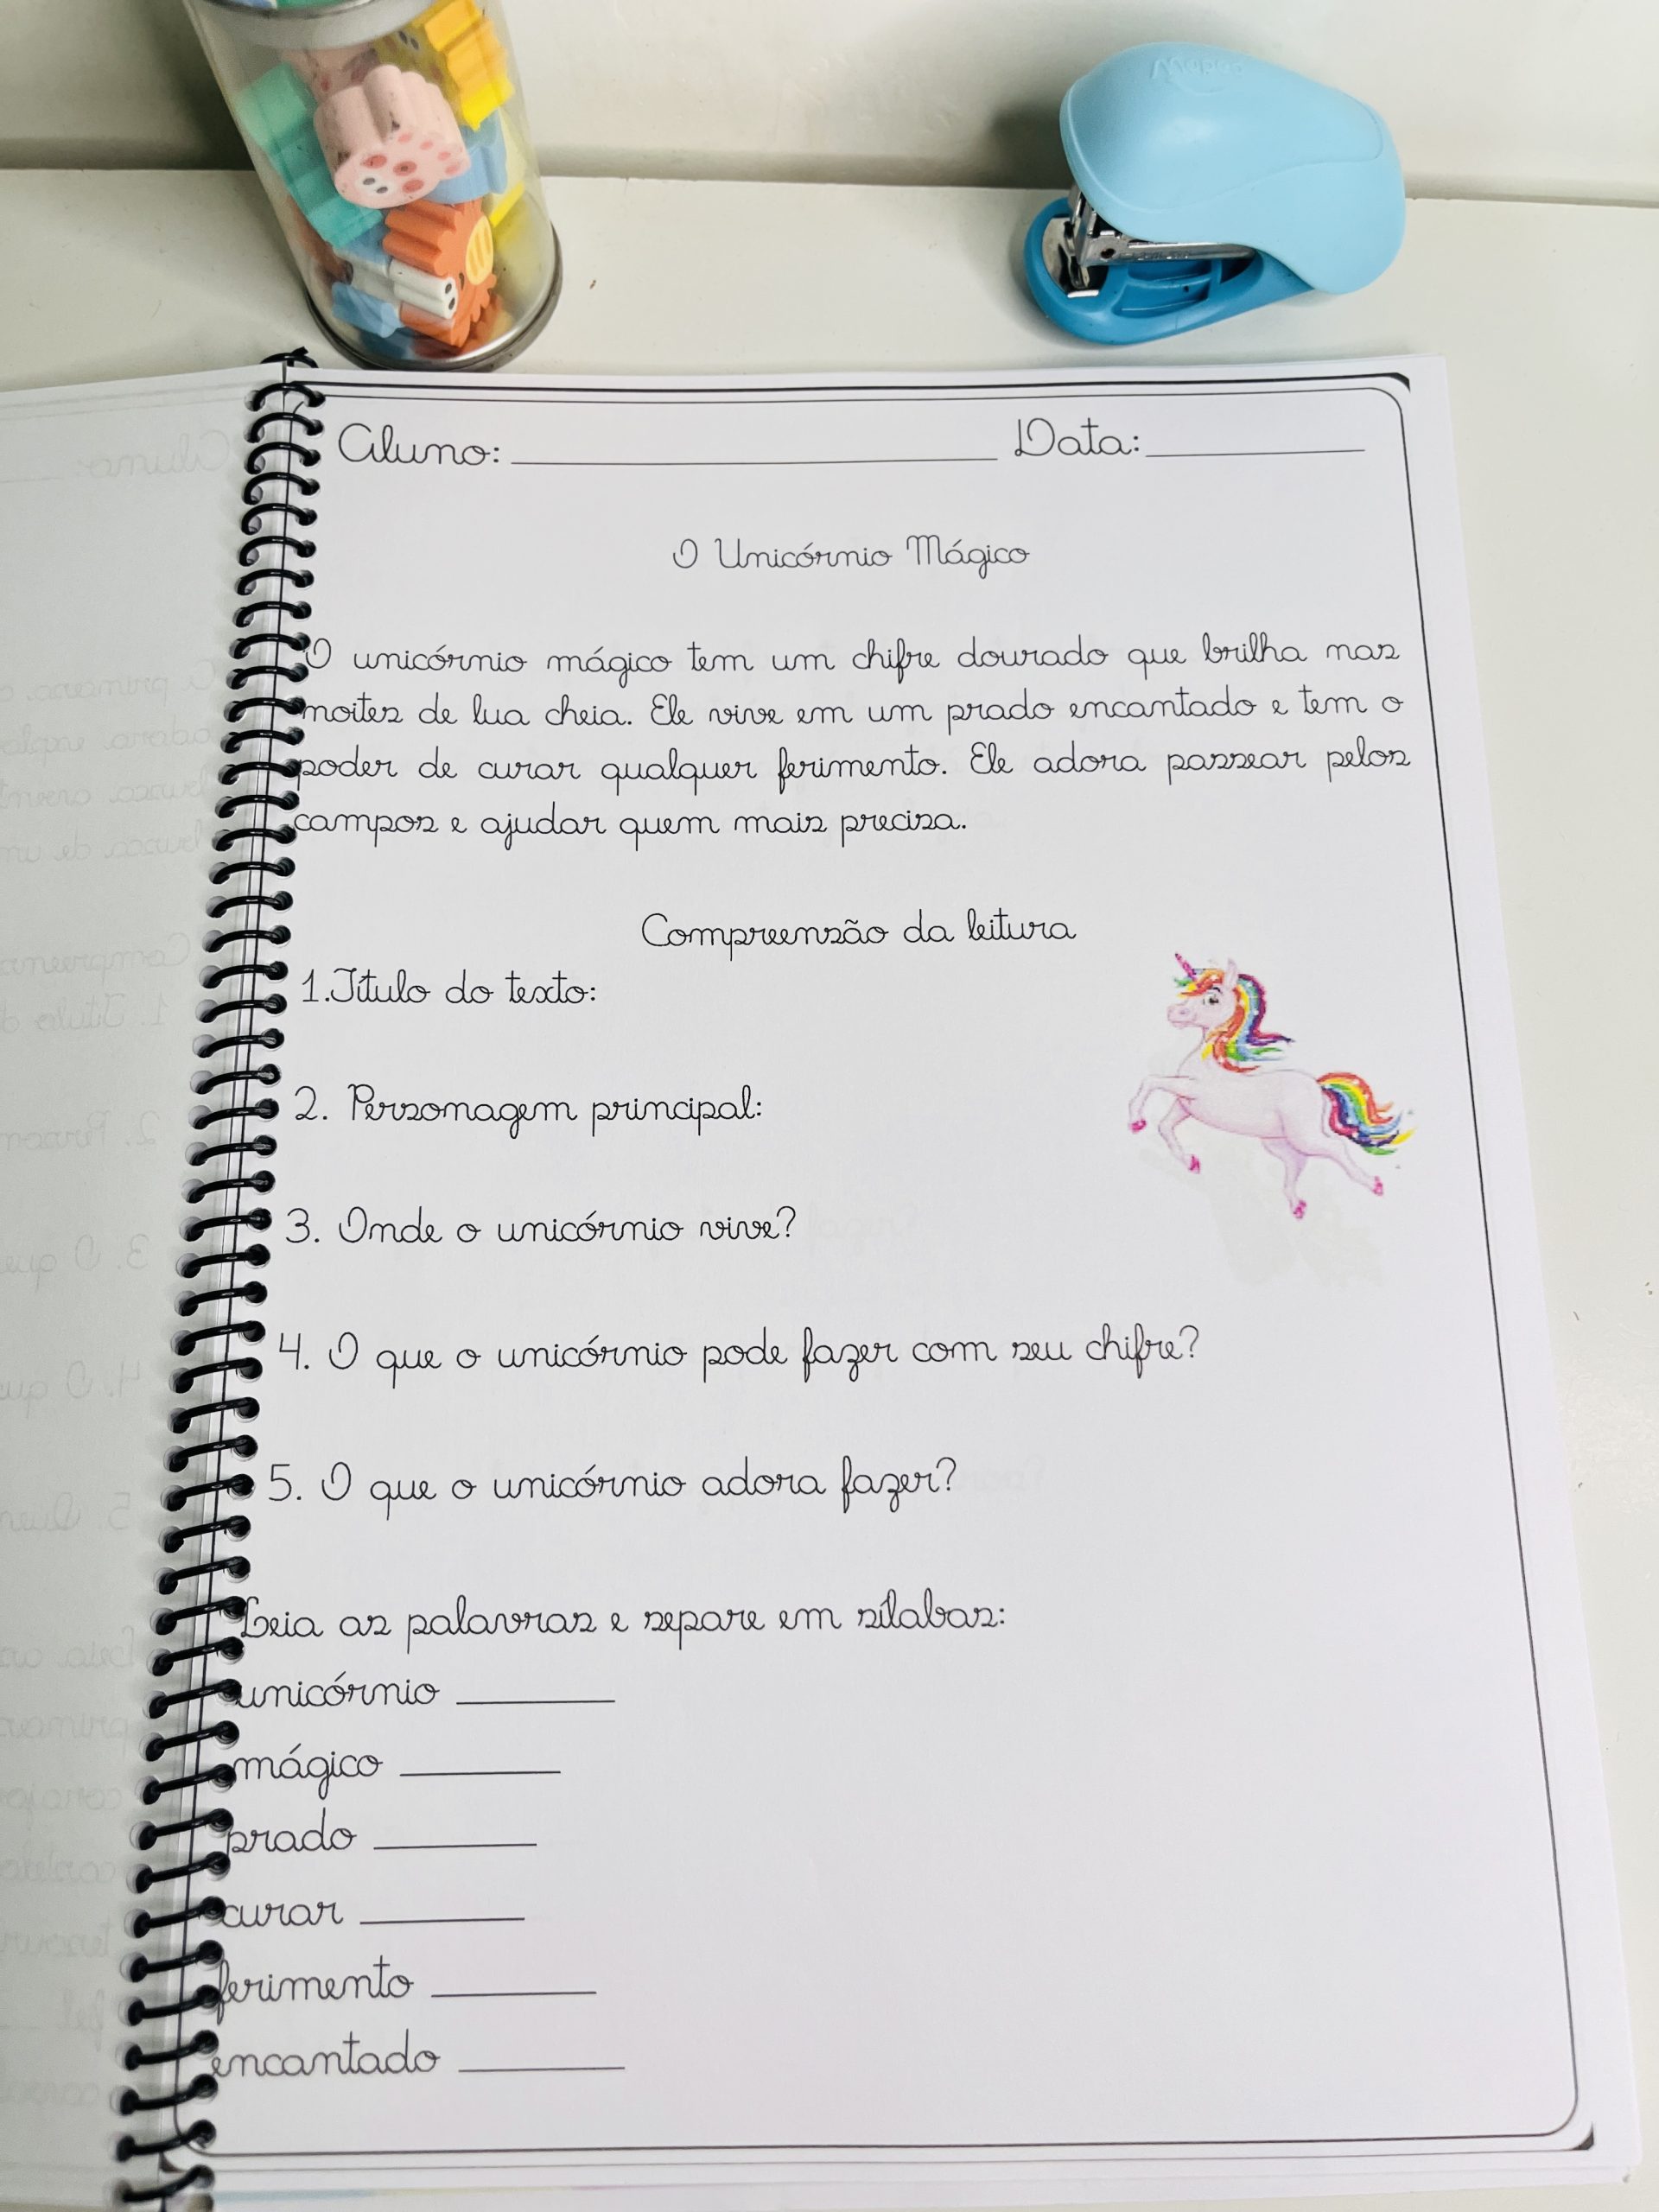 Aluno: ____________ Data: ________
O Unicórnio Mágico
O unicórnio mágico tem um chifre dourado que brilha nas
noites de lua cheia. Ele vive em um prado encantado e tem o
poder de curar qualquer ferimento. Ele adora passear pelos
campos e ajudar quem mais precisa.
Compreensão da leitura
1.Título do texto:
2. Personagem principal:
3. Onde o unicórnio vive?
4. O que o unicórnio pode fazer com seu chifre?
5. O que o unicórnio adora fazer?
Leia as palavras e separe em sílabas:
unicórnio ________
mágico ________
prado ________
curar ________
ferimento ________
encantado ________